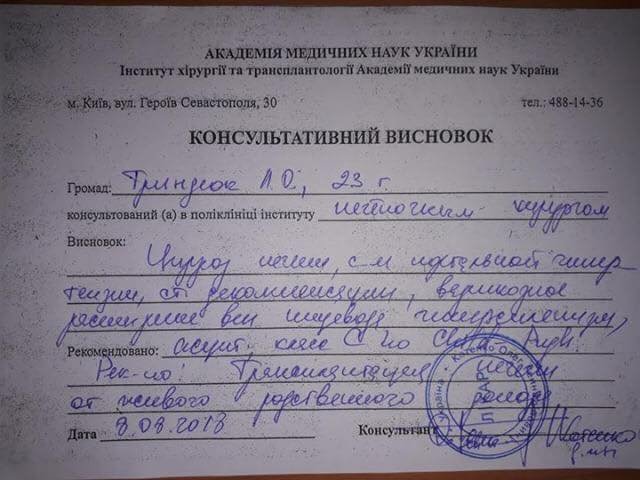 АКАДЕМІЯ МЕДИЧНИХ НАУК УКРАЇНИ
Інститут хірургії та трансплантології Академії медичних наук України
м. Київ, вул. Героїв Севастополя, 30 тел.: 488-14-36
КОНСУЛЬТАТИВНИЙ ВИСНОВОК
Громад: Л.О., 23 г.
консультований (а) в поліклініці інституту печеночным хирургом
Висновок:
Цирроз печени, с-м портальной гипер
тензии, ст декомпенсации, варикозное
расширение вен пищевода, гиперспленизм,
Рекомендовано: асцит, класс С по Child-Pugh.
Рек-но: Трансплантация печени
от живого родственного
Дата 8.08.2018 Консультант Котенко
д.мн
Котенко Олег
Україна
ЛІКАР